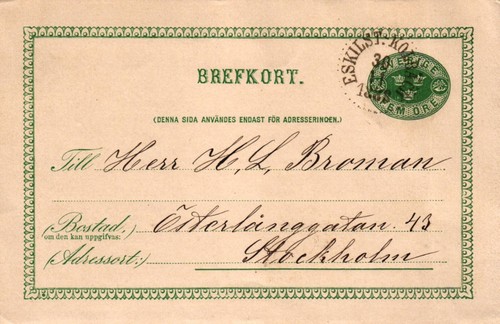 ESKILST.-KO
SVERIGE
FEM ÖRE
BREFKORT.
(DENNA SIDA ANVÄNDES ENDAST FÖR ADRESSERINGEN.)
Till Herr H. L. Broman
(Bostad, Österlånggatan. 43
om den kan uppgifvas:)
(Adressort:) Stockholm